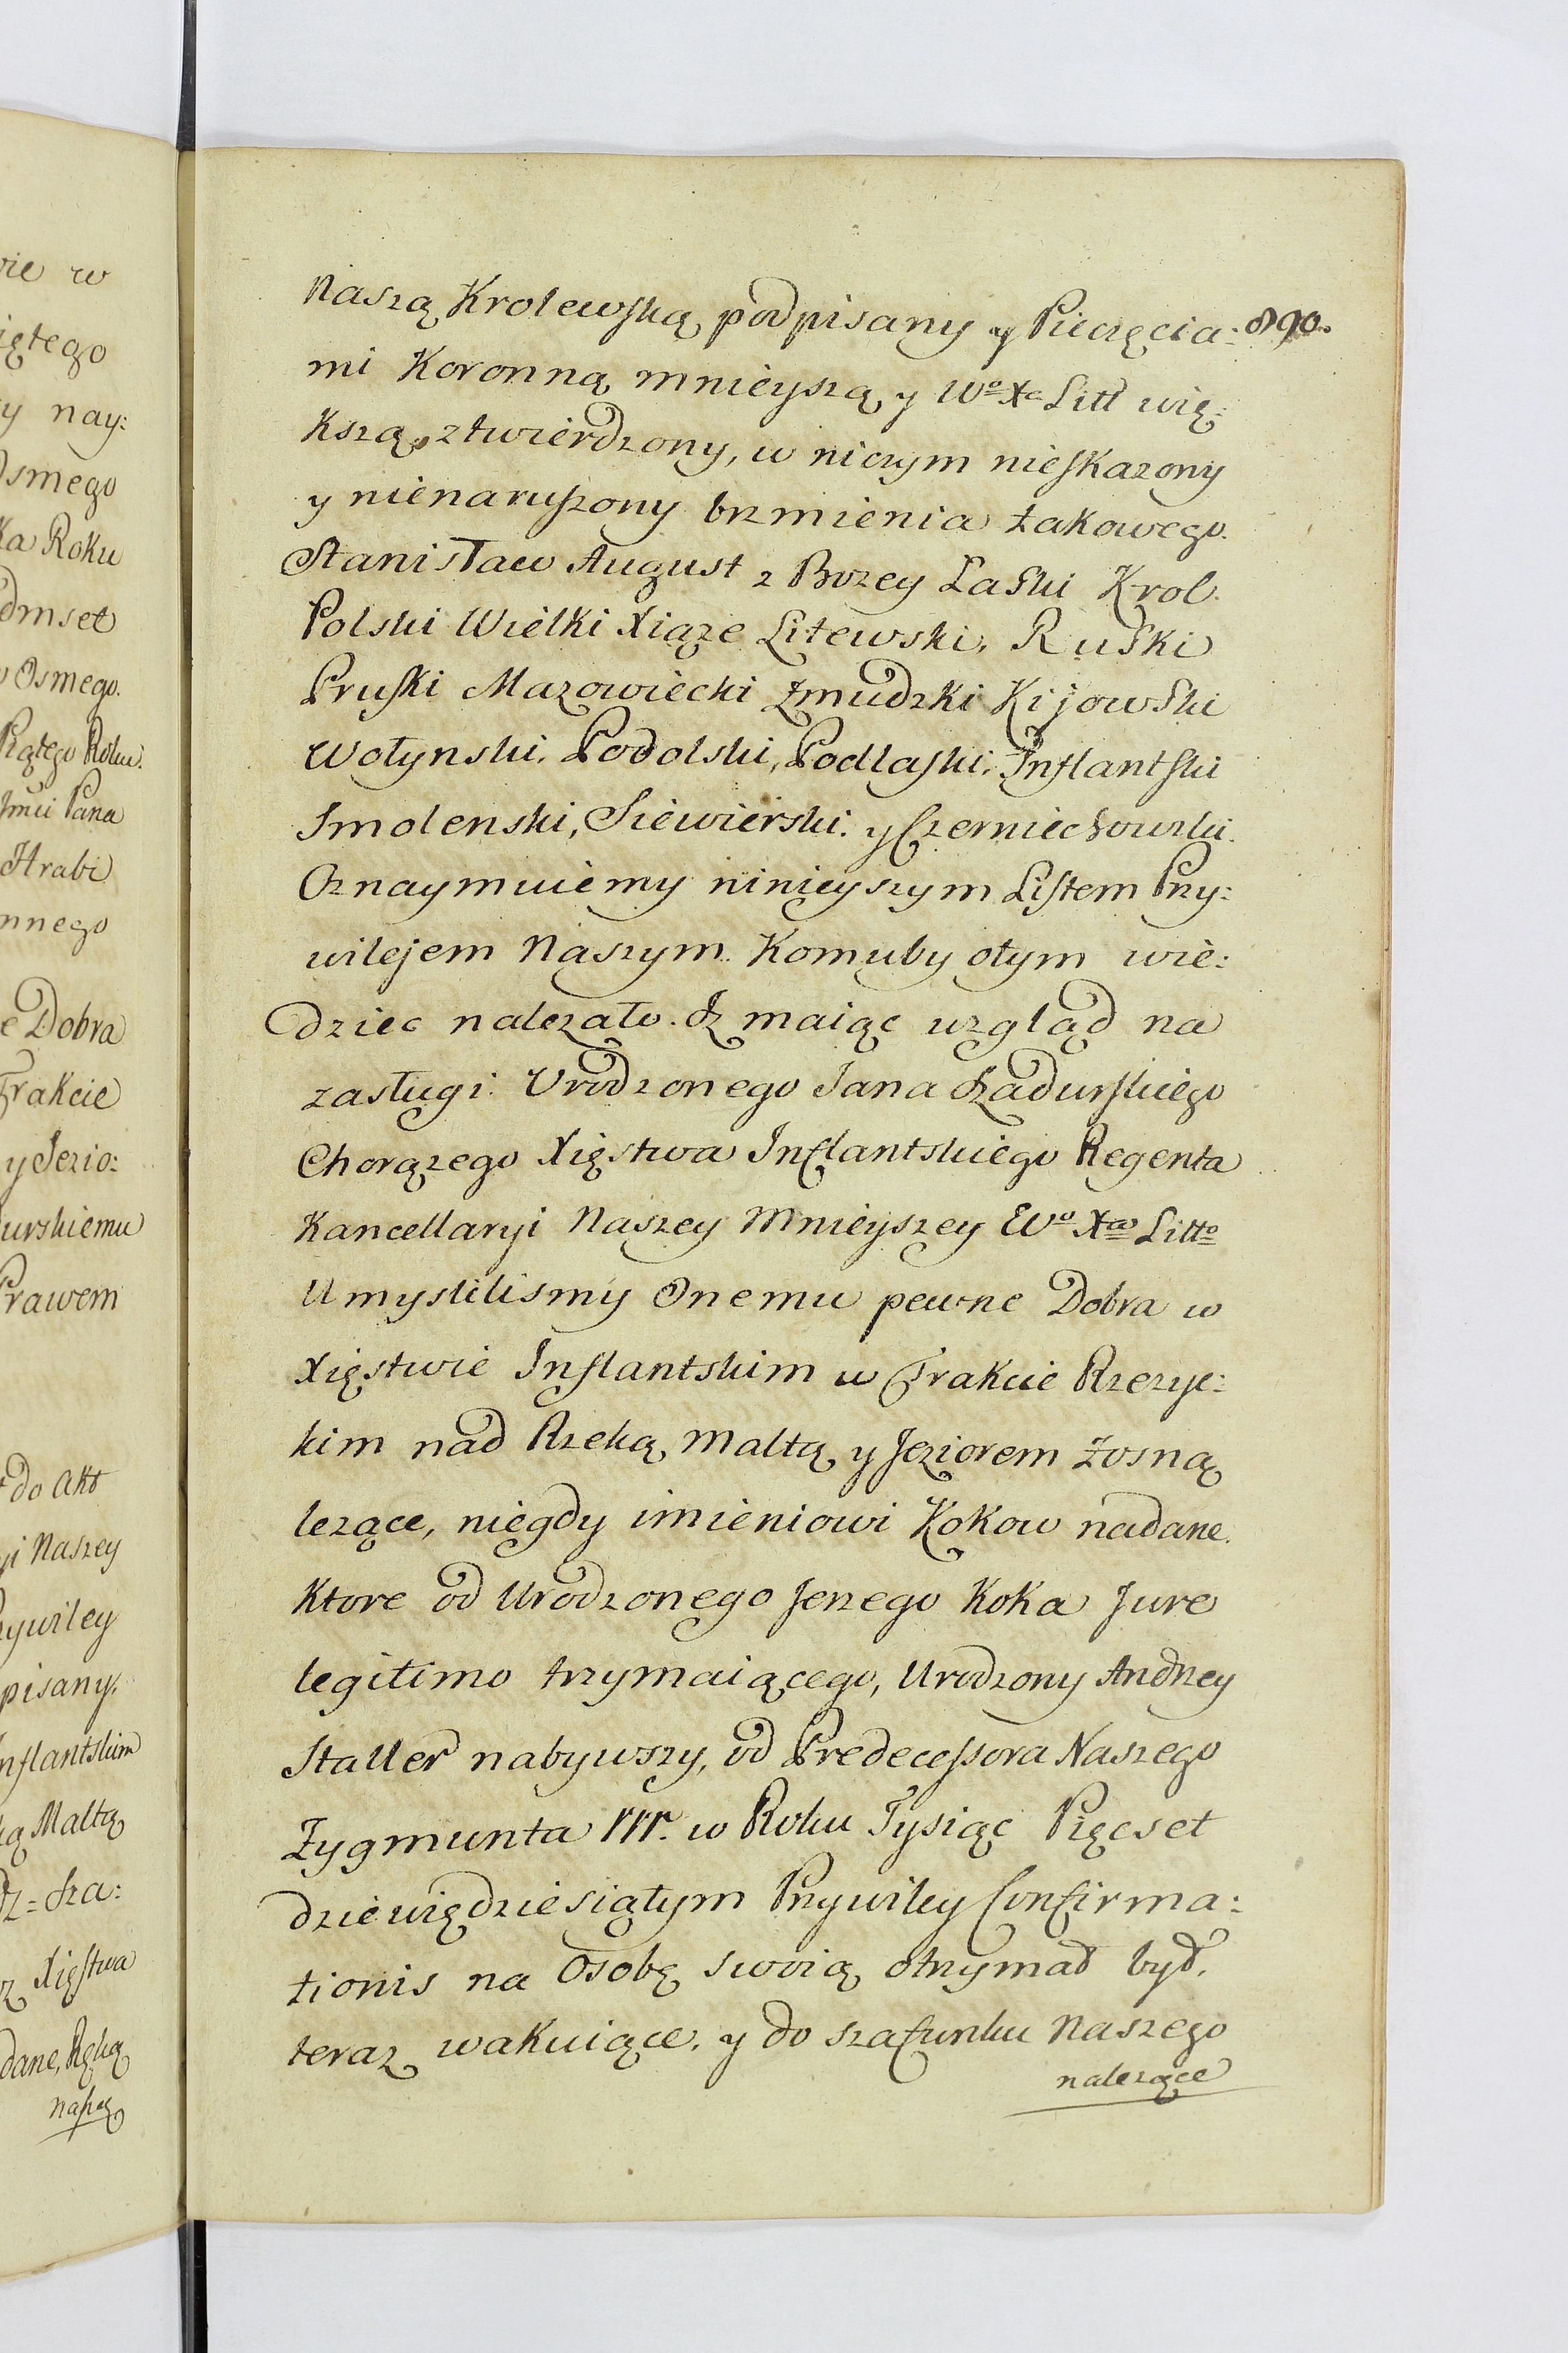 vie w
iątego
y nay:
Osmego
ka Roku
edmset
w Osmego.
Piątego Roku.
Jmci Pana
Hrabi
nnego
e Dobra
Trakcie
y Jezio:
urskiemu
Prawem
do Akt
yi Naszey
zywiley
pisany.
Inflantskim
ką Maltą
Sza:
Xięstwa
dane, Ręką
naszą
Naszą Krolewską podpisany y Pieczęcia: 890.
mi Koronną mnieyszą y Wo Xa Litt wię:
Kszą, ztwierdzony, w niczym nieskazony
y nienaruszony brzmienia takowego.
Stanisław August z Bozey Łaski Krol.
Polski Wielki Xiąze Litewski, Ruski
Pruski Mazowiecki Zmudzki Kijowski
Wołynski. Podolski, Podlaski. Inflantski
Smolenski, Siewierski. y Czerniechowski.
Oznaymuiemy ninieyszym Listem Przy:
wilejem Naszym. Komuby otym wie:
dziec nalezało. Iz maiąc wzgląd na
zasługi. Urodzonego Jana Szadurskiego
Chorązego Xięstwa Inflantskiego Regenta
Kancellaryi Naszey Mnieyszey Wo Xa Litto
Umyslilismy Onemu pewne Dobra w
Xięstwie Inflantskim w Trakcie Rzezyc:
kim nad Rzeką Maltą y Jeziorem Zosną
lezące, niegdy imieniowi Kokow nadane.
Ktore od Urodzonego Jerzego Koka Jure
legitimo trzymaiącego, Urodzony Andrzey
Staller nabywszy, od Predecessora Naszego
Zygmunta III. w Roku Tysiąc Pięcset
dziewiędziesiątym Przywiley Confirma:
tionis na Osobę swoią otrzymał był,
teraz wakuiące. y do szafunku Naszego
nalezące